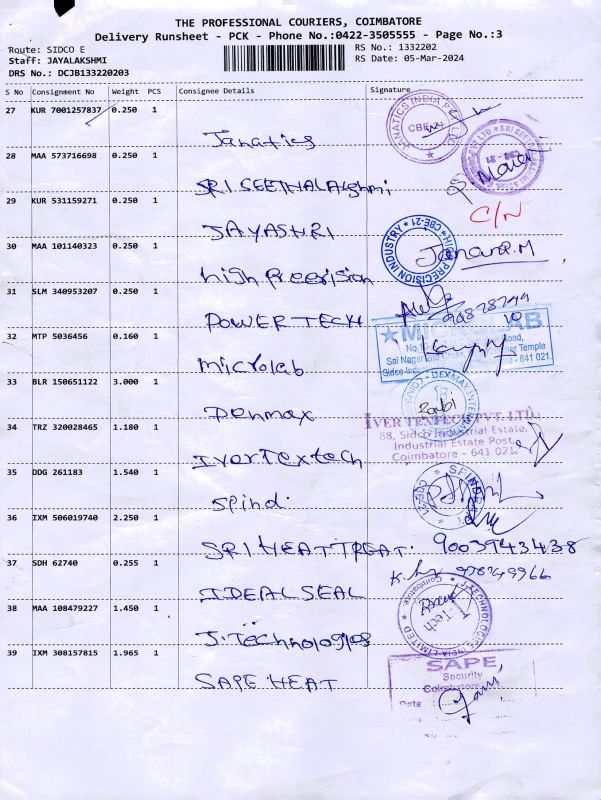 THE PROFESSIONAL COURIERS, COIMBATORE
Delivery Runsheet - PCK - Phone No.:0422-3505555 - Page No.:3
Route: SIDCO E
Staff: JAYALAKSHMI
DRS No.: DCJB133220203
RS No.: 1332202
RS Date: 05-Mar-2024
S No Consignment No Weight PCS Consignee Details Signature
27 KUR 7001257837 0.250 1
Janatics
JANATICS INDIA P LTD
CBE
28 MAA 573716698 0.250 1
SRI SEETHALAkshmi
29 KUR 531159271 0.250 1
JAYASHRI
C/N
30 MAA 101140323 0.250 1
high Precision
HIGH PRECISION INDUSTRY ★ CBE-21 ★
Janan R.M
31 SLM 340953207 0.250 1
POWER TECH
32 MTP 5036456 0.160 1
microlab
MICROLAB
Road,
Sai Nagar Temple
Sidco Indu - 641 021.
33 BLR 150651122 3.000 1
Denmax
34 TRZ 320028465 1.180 1
IverTextech
IVER TEXTECH PVT. LTD.
88, Sidco Industrial Estate,
Industrial Estate Post,
Coimbatore - 641 021.
35 DDG 261183 1.540 1
Spind.
36 IXM 506019740 2.250 1
SRI HEAT TREAT. 9003943438
37 SDH 62740 0.255 1
IDEAL SEAL
38 MAA 108479227 1.450 1
J. Technologies
J-TECHNOLOGIES INDIA LIMITED
Coimbatore
J-Tech
39 IXM 308157815 1.965 1
SAPE HEAT
SAPE
Security
Coimbatore
Date :